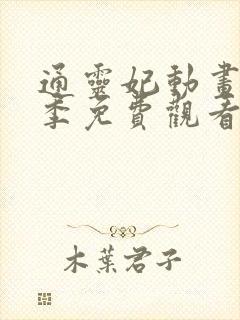 通靈妃動畫
季免費觀看
木葉君子